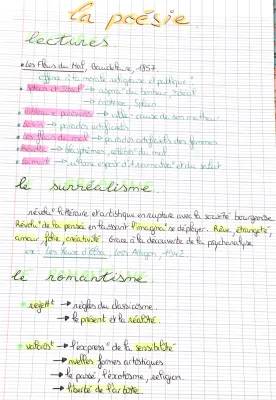 la poésie
lectures
• Les Fleurs du Mal, Baudelaire, 1857
offense à la morale religieuse et publique"
• Spleen et Idéal → aspire du bonheur idéal
→ tristesse, Spleen
• tableaux parisiens → ville cause de son malheur
→ paradis artificiels
• les fleurs du mal → paradis artificiels des femmes
• Révolte → blasphèmes, du mal
• la mort → ultime espoir d' et du salut
le surréalisme
révolu° littéraire et artistique en rupture avec la société bourgeoise.
Révolu° de la pensée en laissant "l'imagina° se déployer. Rêve, étrangeté,
amour folie, créativité. Grâce à la découverte de la psychanalyse.
ex: Les yeux d'Elsa, Louis Aragon, 1942
le romantisme
• rejett → règles du classicisme.
→ le présent et la réalité.
• valorist → l'express° de la sensibilité
→ nvelles formes artistiques
→ le passé, l'exotisme, religion.
→ liberté de l'artiste.